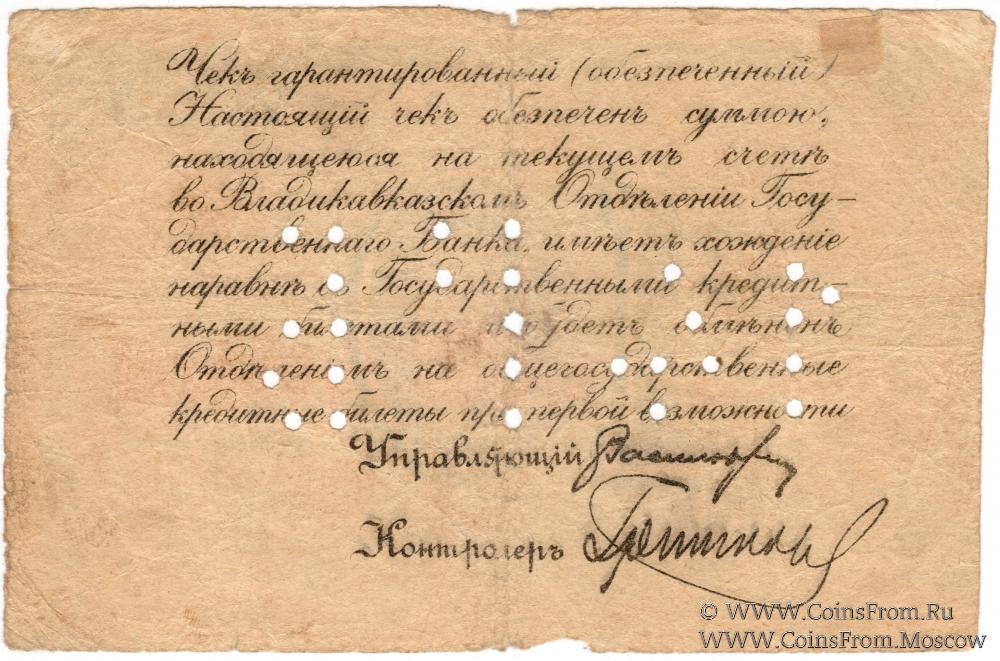 Чекъ гарантированный (обезпеченный)
Настоящій чекъ обезпеченъ суммою,
находящеюся на текущемъ счетѣ
во Владикавказскомъ Отдѣленіи Госу-
дарственнаго Банка, имѣетъ хожденіе
наравнѣ съ Государственными кредит-
ными билетами и будетъ обмѣненъ
Отдѣленіемъ на общегосударственные
кредитные билеты при первой возможности
Управляющій
Контролеръ
© WWW.CoinsFrom.Ru
WWW.CoinsFrom.Moscow